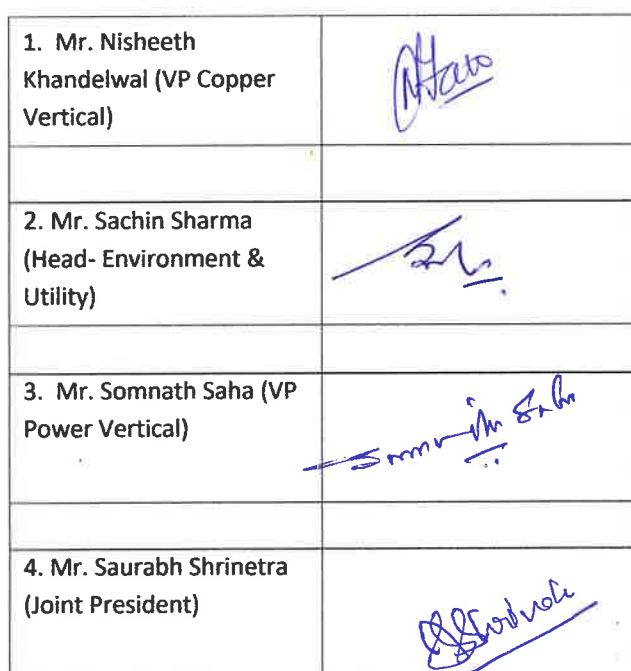 1. Mr. Nisheeth
Khandelwal (VP Copper
Vertical)
2. Mr. Sachin Sharma
(Head- Environment &
Utility)
3. Mr. Somnath Saha (VP
Power Vertical)
Somnath Saha
4. Mr. Saurabh Shrinetra
(Joint President)